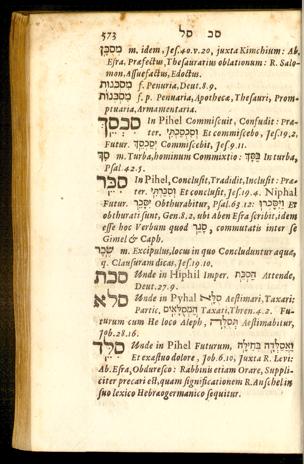 573 סכ סל
מסכן m. idem, Jes. 40. v. 20, juxta Kimchium: Ab.
Esra. Præfectus, Thesaurarius oblationum: R. Salo-
mon. Assuefactus, Edoctus.
מסכנות f. Penuria, Deut. 8. 9.
מסכנות f. p. Penuaria, Apotheca, Thesauri, Prom-
ptuaria, Armamentaria.
סכסך In Pihel Commiscuit, Confudit: Præ-
ter. וסכסכתי Et commiscebo, Jes. 19. 2.
Futur. יסכסך Commiscebit, Jes. 9. 11.
סך m. Turba, hominum Commixtio: בסך In turba,
Psal. 42. 5.
סכר In Pihel, Conclusit, Tradidit, Inclusit: Præ-
ter. וסכרתי Et conclusit, Jes. 19. 4. Niphal
Futur. יסכר Obthurabitur, Psal. 63. 12: ויסכרו Et
obthurati sunt, Gen. 8. 2, ubi Aben Esra scribit, idem
esse hoc Verbum quod סגר, commutatis inter se
Gimel & Caph.
שכר m. Excipulus, locus in quo Concluduntur aquæ,
q. Clausuram dicas, Jes. 19. 10.
סכת Unde in Hiphil Imper. הסכת Attende,
Deut. 27. 9.
סלא Unde in Pyhal סלא Æstimari, Taxari:
Partic. המסלאים Taxati, Thren. 4. 2. Fu-
turum cum He loco Aleph, תסלה Æstimabitur,
Job. 28. 16.
סלד Unde in Pihel Futurum, ואסלדה בחילה
Et exæstuo dolore, Job. 6. 10, Juxta R. Levi:
Ab. Esra, Obduresco: Rabbinis etiam Orare, Suppli-
citer precari est, quam significationem R. Anschel in
suo lexico Hebræogermanico sequitur.